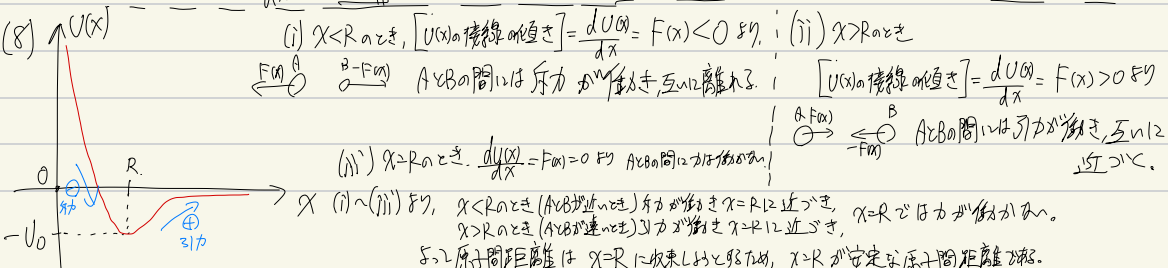 (8) U(x)
(i) x<Rのとき, [U(x)の接線の傾き] = dU(x)/dx = F(x)<0 より,
F(x) A B -F(x) AとBの間には斥力が働き, 互いに離れる.
(ii) x>Rのとき
[U(x)の接線の傾き] = dU(x)/dx = F(x)>0 より
A F(x) B -F(x) AとBの間には引力が働き, 互いに
近づく.
(iii) x=Rのとき. dU(x)/dx = F(x)=0 より AとBの間に力は働かない.
0 R x
斥力
-U₀
引力
(i)~(iii) より, x<Rのとき(AとBが近いとき)斥力が働き x=Rに近づき,
x>Rのとき(AとBが遠いとき)引力が働き x=Rに近づき,
x=Rでは力が働かない。
よって原子間距離は x=R に収束しようとするため, x=R が安定な原子間距離である。